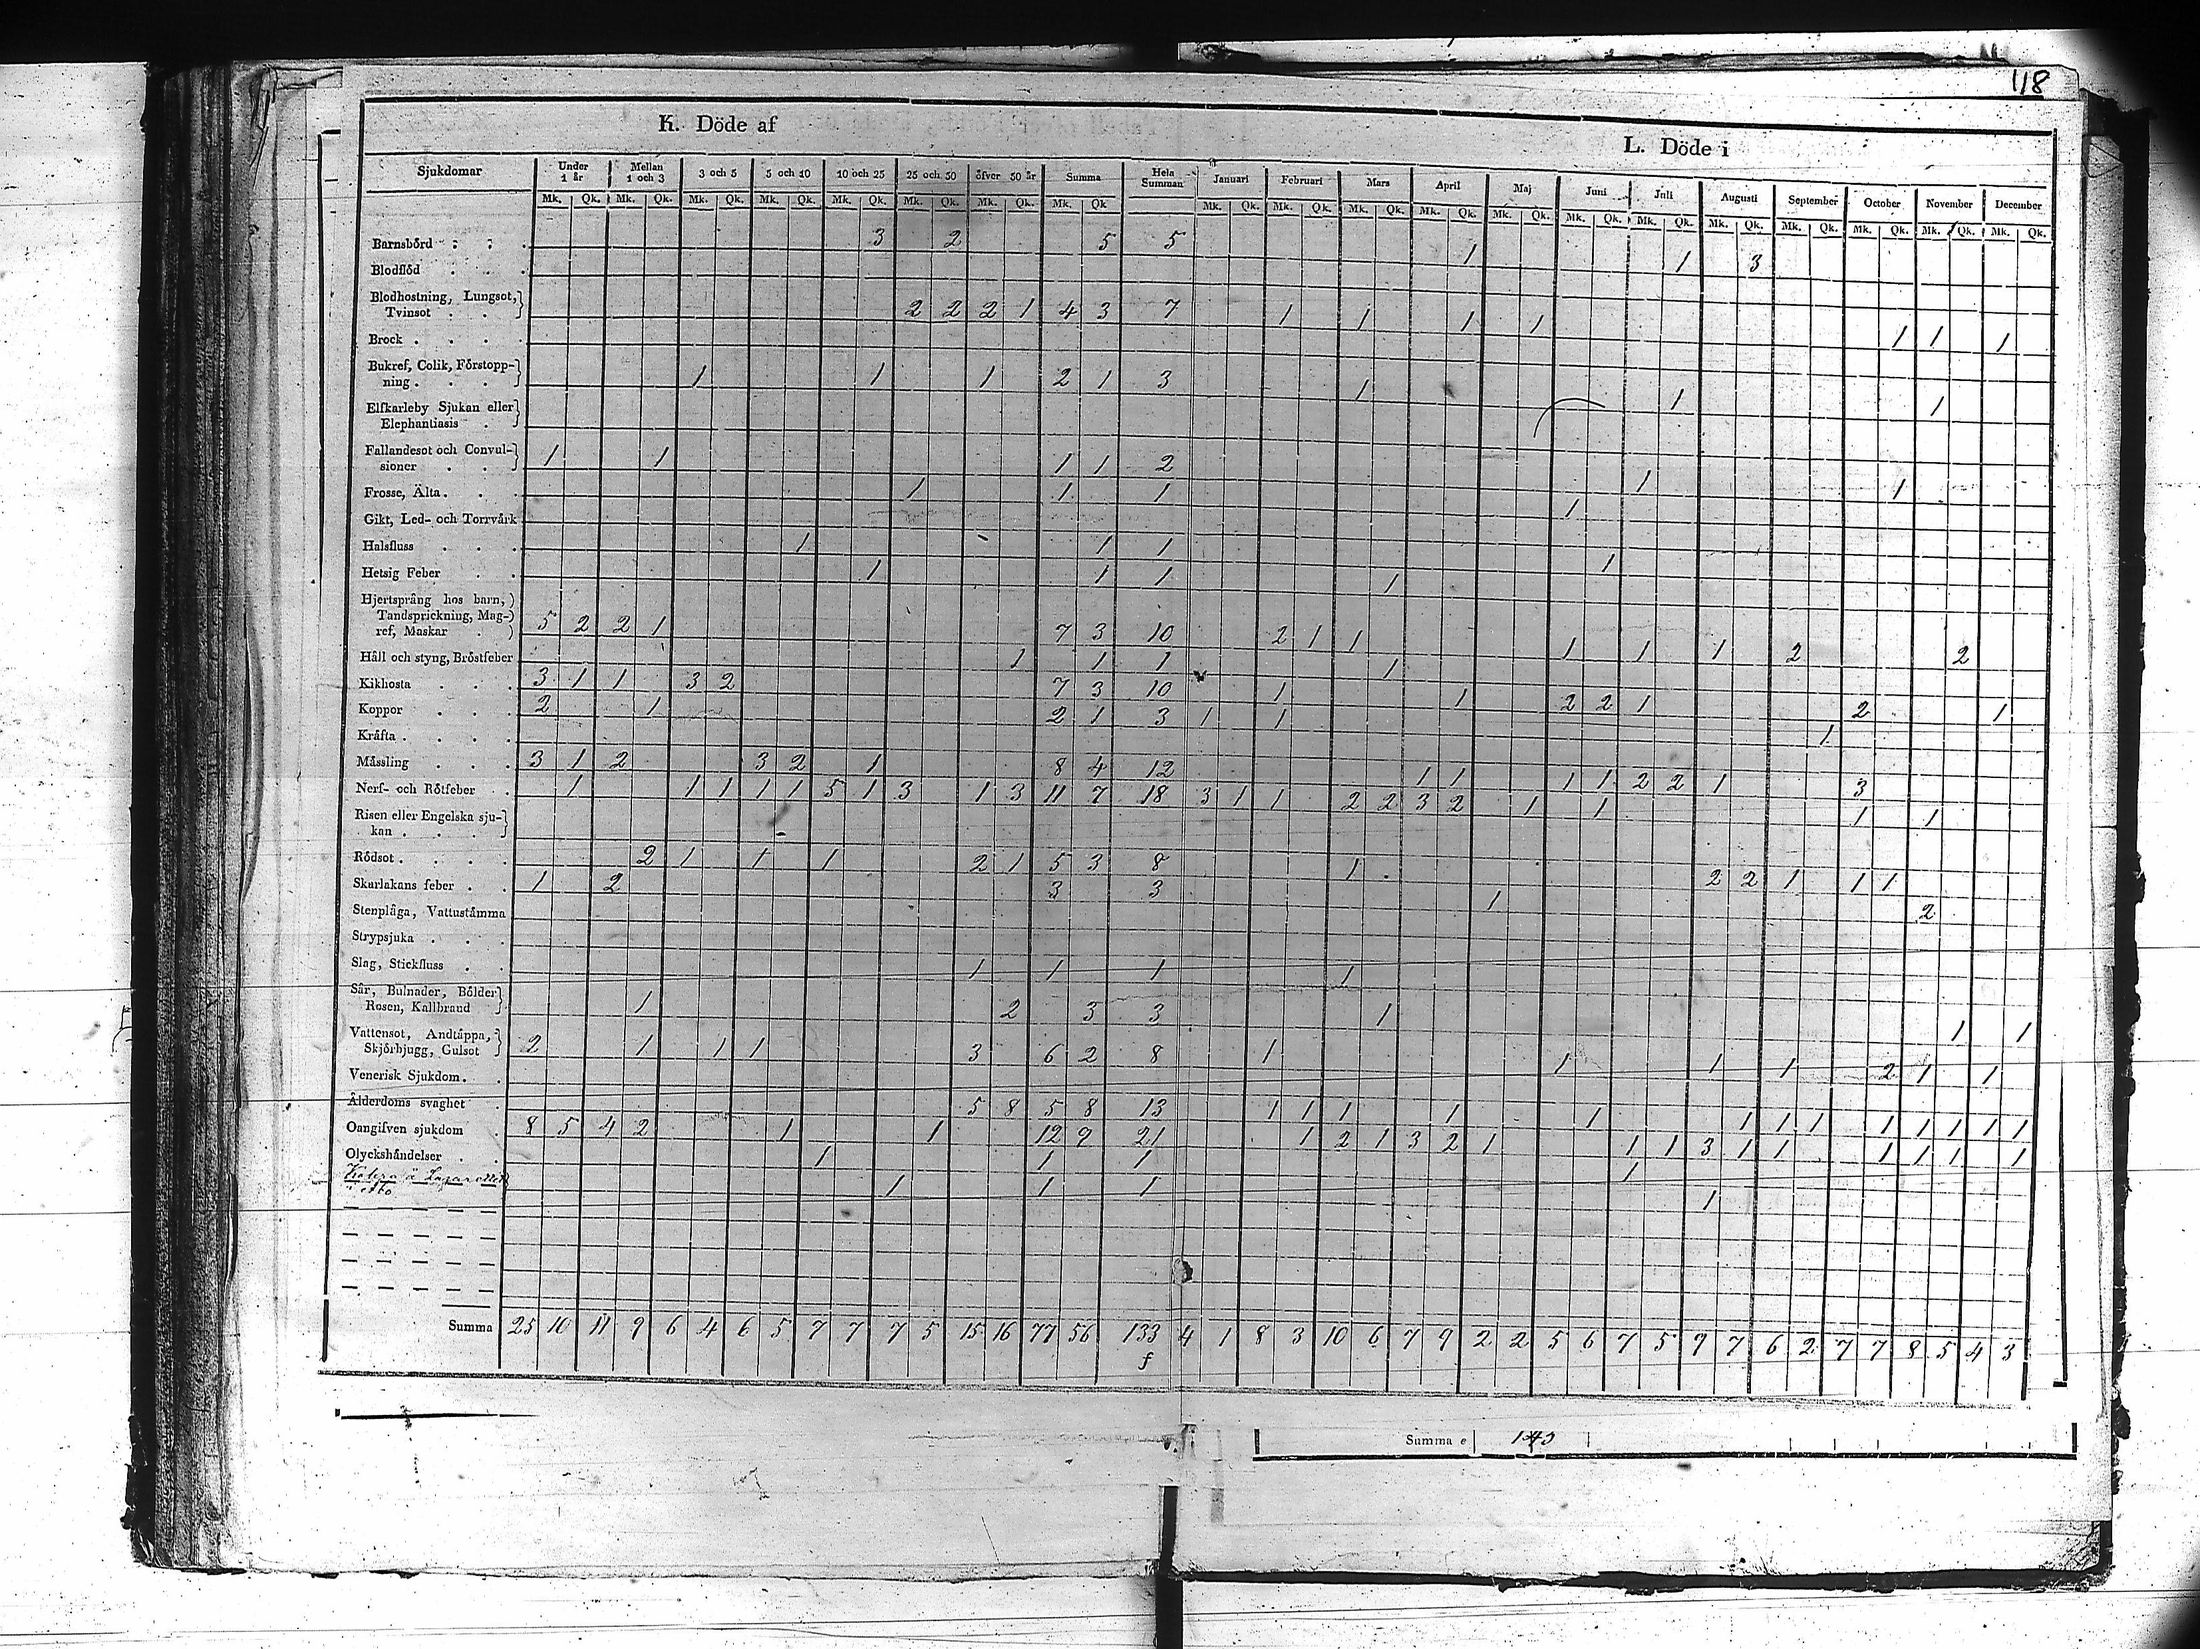 118
K. Döde af
L. Döde i
Sjukdomar Under 1 år Mellan 1 och 3 3 och 5 5 och 10 10 och 25 25 och 50 öfver 50 år Summa Hela Summan Januari Februari Mars April Maj Juni Juli Augusti September October November December
Mk. Qk. Mk. Qk. Mk. Qk. Mk. Qk. Mk. Qk. Mk. Qk. Mk. Qk. Mk. Qk Mk. Qk. Mk. Qk. Mk. Qk. Mk. Qk. Mk. Qk. Mk. Qk. Mk. Qk. Mk. Qk. Mk. Qk. Mk. Qk. Mk. Qk. Mk. Qk.
Barnsbörd 3 2 5 5 1 1 3
Blodflöd
Blodhostning, Lungsot,
Tvinsot 2 2 2 1 4 3 7 1 1 1 1 1 1 1
Brock
Bukref, Colik, Förstopp-
ning 1 1 1 2 1 3 1 1 1
Elfkarleby Sjukan eller
Elephantiasis
Fallandesot och Convul-
sioner 1 1 1 1 2 1 1
Frosse, Älta 1 1 1 1
Gikt, Led- och Torrvärk
Halsfluss 1 1 1 1
Hetsig Feber 1 1 1 1
Hjertsprång hos barn,
Tandsprickning, Mag-
ref, Maskar 5 2 2 1 7 3 10 2 1 1 1 1 1 2 2
Håll och styng, Bröstfeber 1 1 1 1
Kikhosta 3 1 1 3 2 7 3 10 1 1 2 2 1 2 1
Koppor 2 1 2 1 3 1 1 1
Kräfta
Mässling 3 1 2 3 2 1 8 4 12 1 1 1 1 2 2 1 3
Nerf- och Rötfeber 1 1 1 1 1 5 1 3 1 3 11 7 18 3 1 1 2 2 3 2 1 1 1 1
Risen eller Engelska sju-
kan
Rödsot 2 1 1 1 2 1 5 3 8 1 2 2 1 1 1
Skarlakans feber 1 2 3 3 1 2
Stenplåga, Vattustämma
Strypsjuka
Slag, Stickfluss 1 1 1 1
Sår, Bulnader, Bölder
Rosen, Kallbrand 1 2 3 3 1 1 1
Vattensot, Andtäppa,
Skjörbjugg, Gulsot 2 1 1 1 3 6 2 8 1 1 1 1 2 1 1
Venerisk Sjukdom
Ålderdoms svaghet 5 8 5 8 13 1 1 1 1 1 1 1 1 1 1 1 1 1
Oangifven sjukdom 8 5 4 2 1 1 12 9 21 1 2 1 3 2 1 1 1 3 1 1 1 1 1 1
Olyckshändelser 1 1 1 1
Kolera å Lazarettet
i Åbo 1 1 1 1
Summa 25 10 11 9 6 4 6 5 7 7 7 5 15 16 77 56 133 4 1 8 3 10 6 7 9 2 2 5 6 7 5 9 7 6 2 7 7 8 5 4 3
f
Summa e